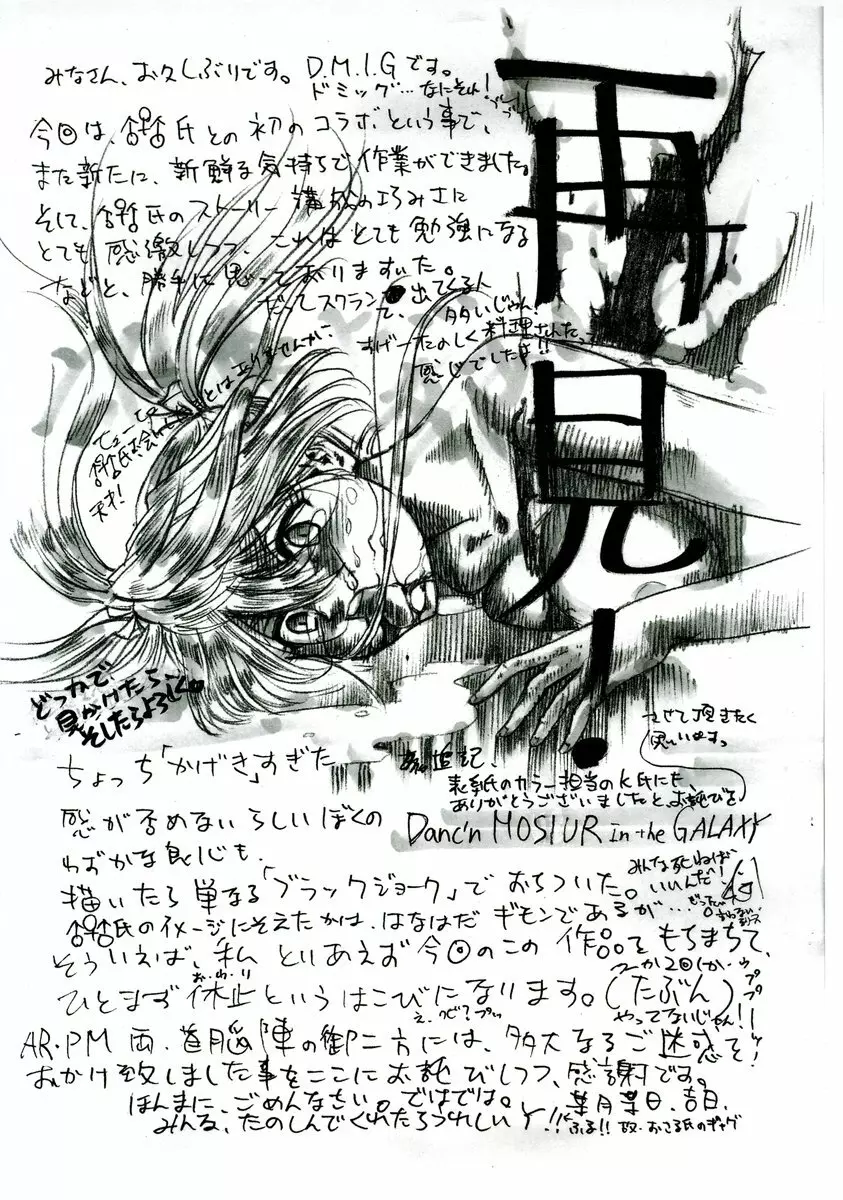 みなさん、お久しぶりです。D.M.I.Gです。
ドミッグ…なにそれ!
今回は、氏との初のコラボという事で、
また新たに、新鮮な気持ちで作業ができました。
そして、氏のストーリー構成の巧みさに
とても感激しつつ、これはとても勉強になる
などと、勝手に思っておりますいた。
だってスクラン 出てくる人
て、多いじゃん!
すげーたのしく料理されたっ
感じでしたよ!!
天才!
再見!
どっかで
見かけたら、
そしたらよろしく。
ちょっち「かげき」すぎた
感が否めないらしいぼくの
わずかな良心も、
描いたら単なる「ブラックジョーク」でおちついた。
氏のイメージにそえたかは、はなはだギモンであるが…
みんな死ねば
いいんだ!
追記、
表紙のカラー担当のK氏にも、
ありがとうございましたと、お詫びを
させて頂きたく
思います。
Danc'n MOSIUR in the GALAXY
そういえば、私とりあえず今回のこの作品をもちまちて、
お・わ・り
ひとまず休止というはこびになります。(たぶん)
やってないじゃん!!
AR・PM両・首脳陣の御二方には、多大なるご迷惑を
おかけ致しました事をここにお詫びしつつ、感謝です。
ほんまに、ごめんなさい。ではでは。
葉月某日、吉日、
みんな、たのしんでくれたらうれしい!!